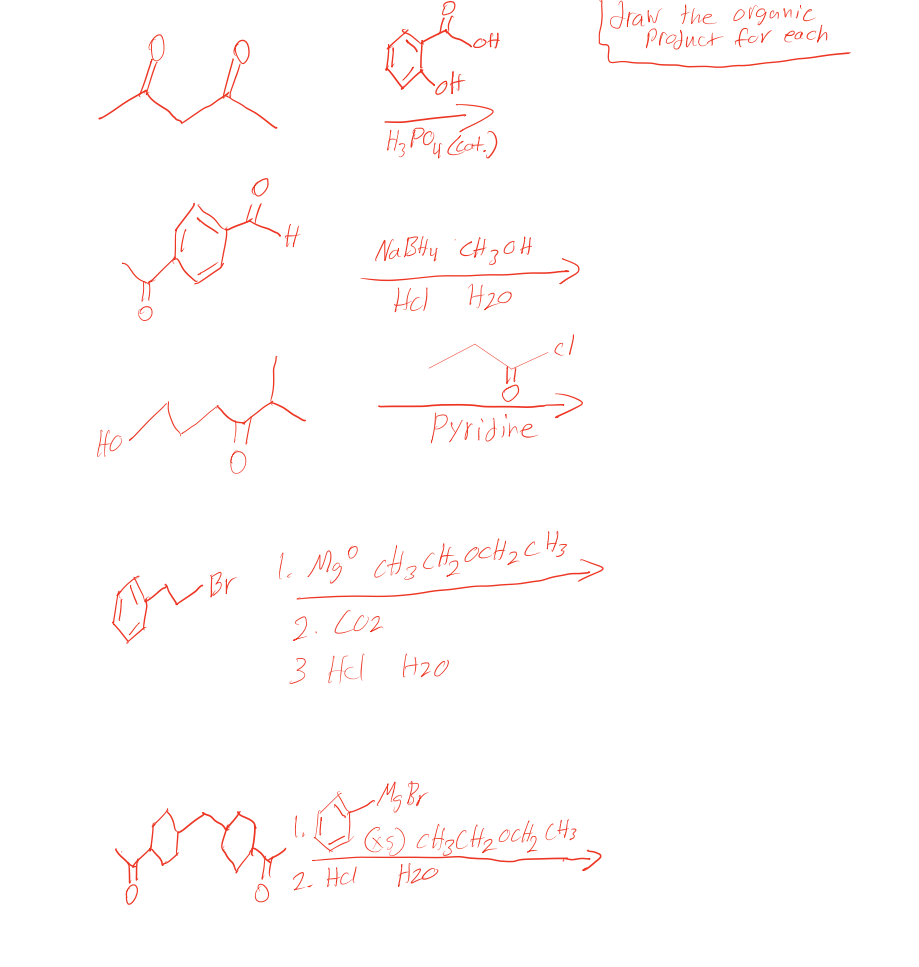 draw the organic
product for each
O O
O
OH
OH
H3PO4 (cat.)
O
H
O
NaBH4 CH3OH
HCl H2O
HO
O
Cl
O
Pyridine
Br
1. Mg0 CH3CH2OCH2CH3
2. CO2
3 HCl H2O
O
O
1.
MgBr
(xs) CH3CH2OCH2CH3
2. HCl H2O